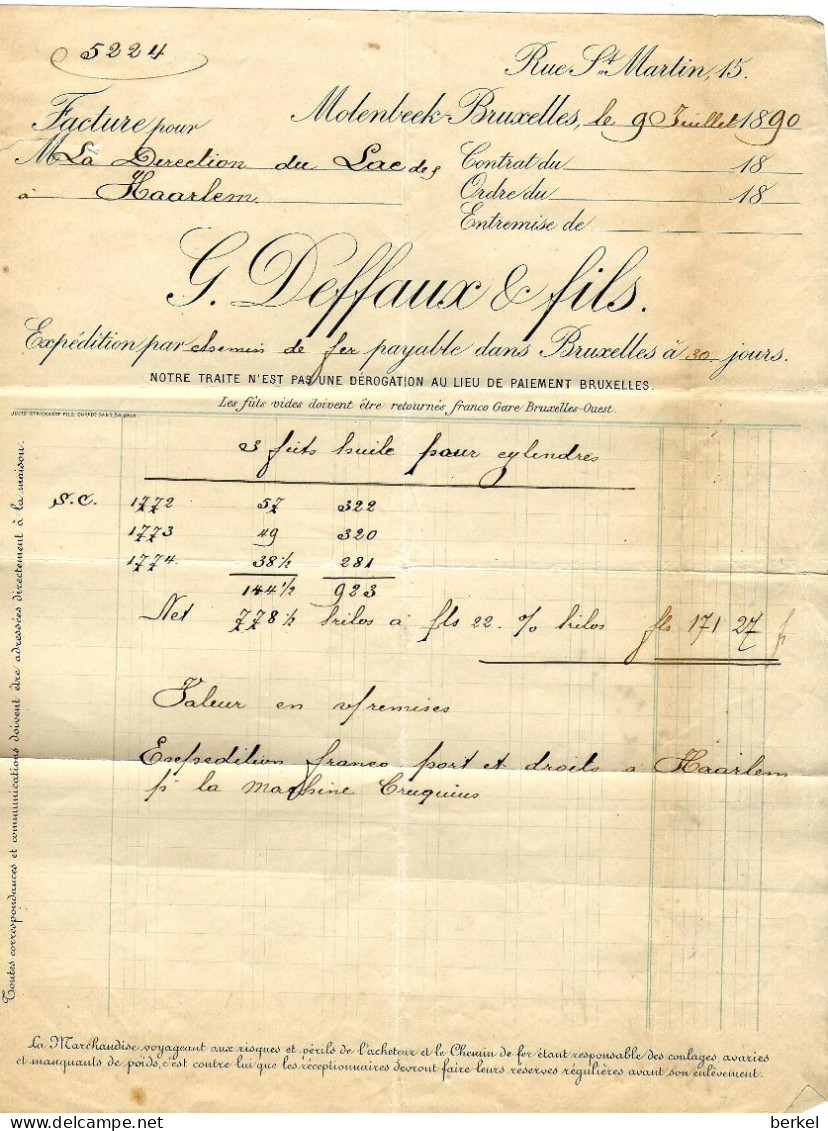 5224
Rue St Martin, 15.
Facture pour
Molenbeek-Bruxelles, le 9 Juillet 1890
M La Direction du Lac de
Contrat du 18
à Haarlem.
Ordre du 18
Entremise de
G. Deffaux & fils.
Expédition par chemin de fer payable dans Bruxelles à 30 jours.
NOTRE TRAITE N'EST PAS UNE DÉROGATION AU LIEU DE PAIEMENT BRUXELLES.
Les fûts vides doivent être retournés franco Gare Bruxelles-Ouest.
3 futs huile pour cylindres
S.C. 1772 57 322
1773 49 320
1774. 38 1/2 281
144 1/2 923
Net 778 1/2 kilos à fls 22. % kilos fls 171 27
Valeur en remises
Expedition franco port et droits a Haarlem
pr la Machine Cruquius
Toutes correspondances et communications doivent être adressées directement à la maison.
La Marchandise voyageant aux risques et périls de l'acheteur et le Chemin de fer étant responsable des coulages, avaries
et manquants de poids, c'est contre lui que les réceptionnaires devront faire leurs réserves régulières avant son enlèvement.
berkel